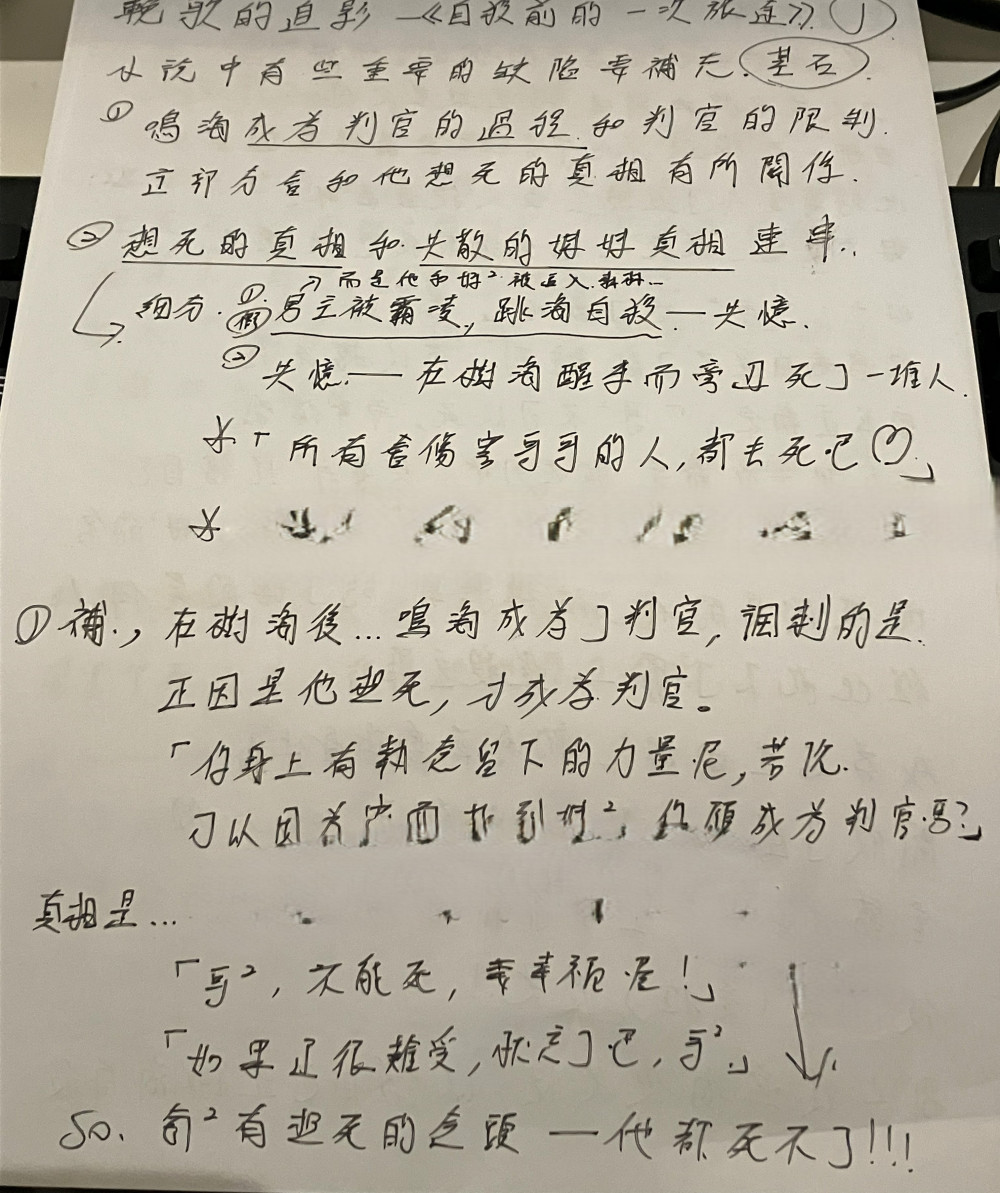 輓歌的追影—《自殺前的一次旅途》
小說中有些重要的缺陷要補充. 基石.
① 鳴海成為判官的過程. 和判官的限制.
這部分會和他想死的真相有所關係.
② 想死的真相和失散的妹妹真相連串..
→而是他和妹²被
細分. ①. 假 男主被霸凌, 跳海自殺—失憶.
② 失憶.—在樹海醒來而旁邊死了一堆人.
「所有會傷害哥哥的人, 都去死吧♡」
① 補., 在樹海後... 鳴海成為了判官, 調剌的是.
正因是他想死, 才成為判官。
「你身上有執念留下的力量呢, 若說.
可以因為 而找到妹², 你願成為判官嗎?」
真相是...
「哥², 不能死, 要幸福喔!」
「如果還很難受, 就忘了吧, 哥²」
So. 每²有想死的念頭—他都死不了!!!